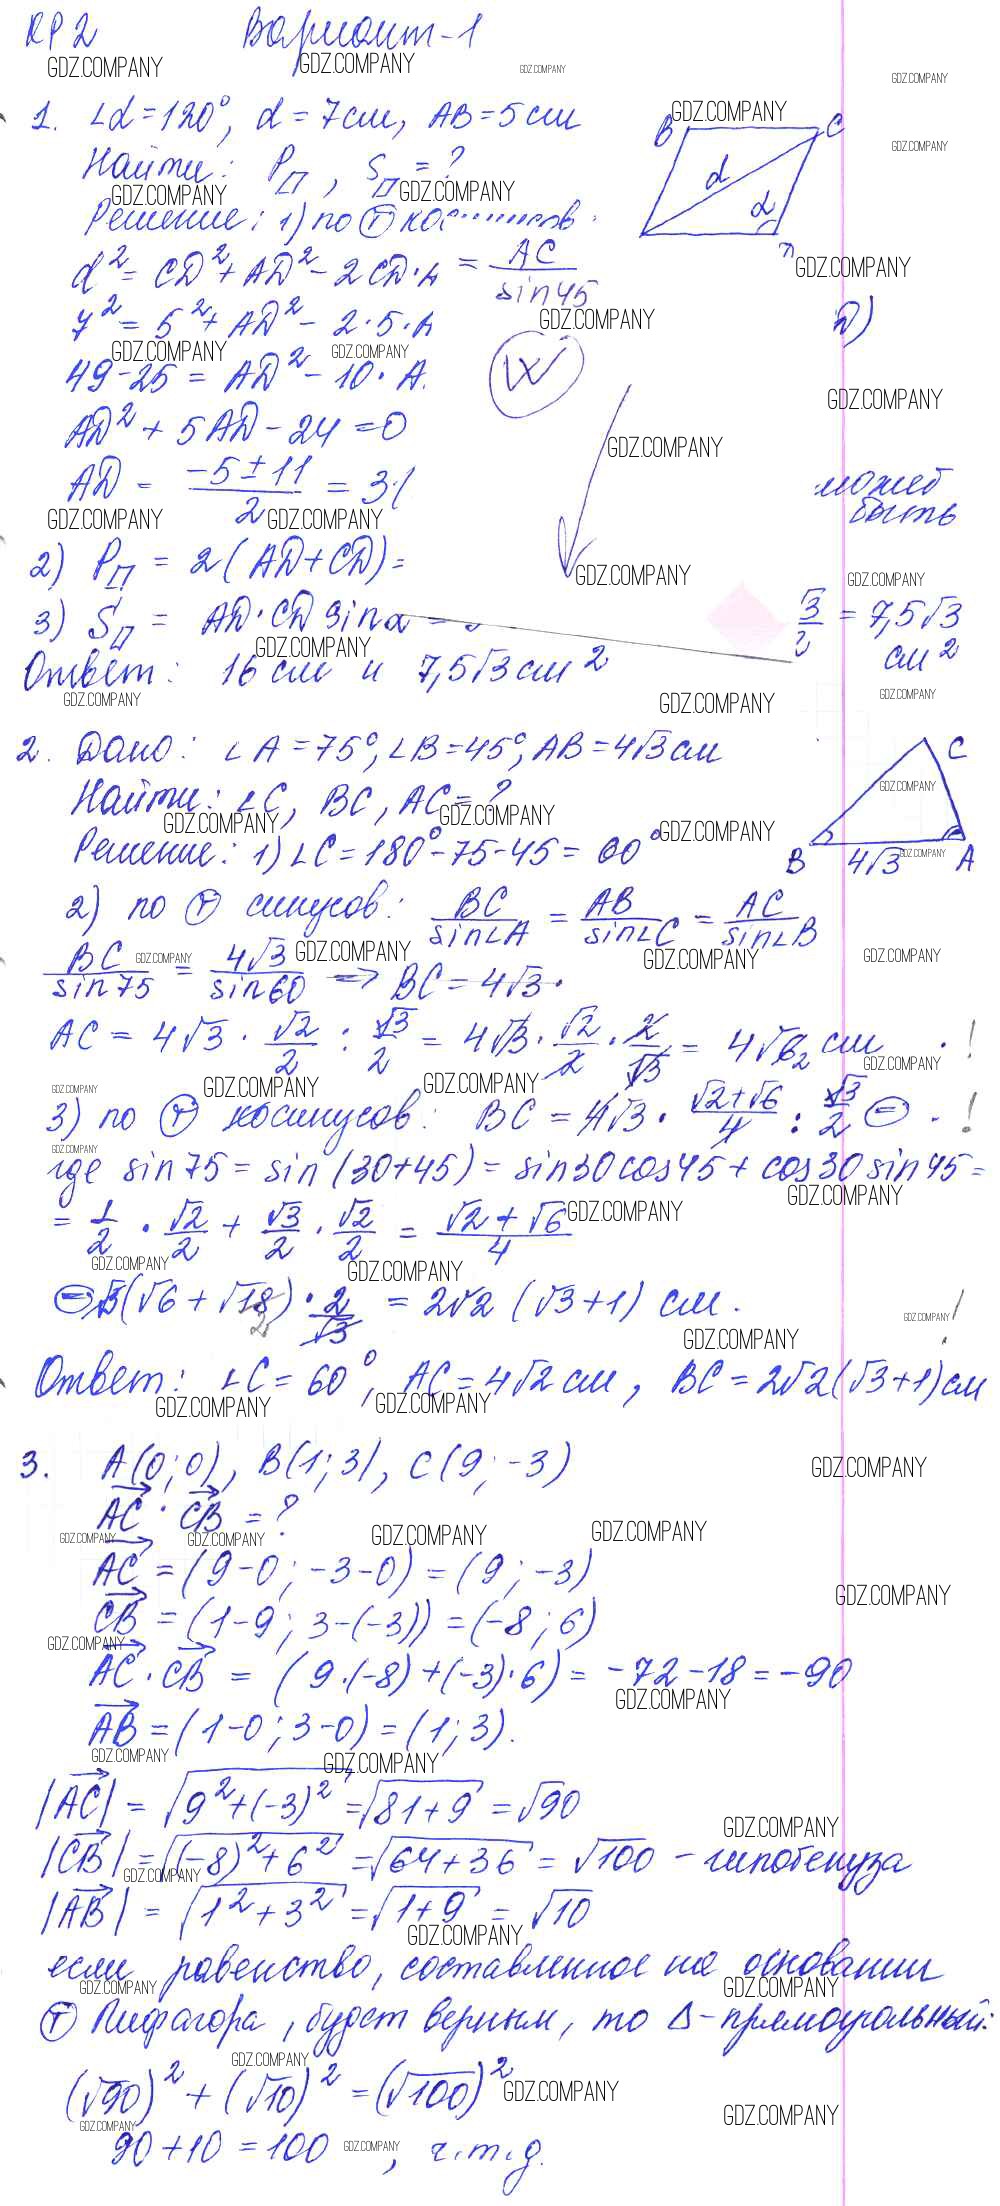 КР 2 Вариант-1
1. ∠α = 120°, d = 7 см, AB = 5 см
Найти: Pп, Sп = ?
Решение: 1) по Ⓣ
d² = CD² + AD² - 2CD·A = AC/sin45
7² = 5² + AD² - 2·5·A
49-25 = AD² - 10·A.
AD² + 5AD - 24 = 0
AD = (-5 ± 11)/2 = 3
2) Pп = 2(AD + CD) =
может
быть
3) Sп = AD·CD sinα = √3/2 = 7,5√3
см²
Ответ: 16 см и 7,5√3 см²
B C d α
2. Дано: ∠A = 75°, ∠B = 45°, AB = 4√3 см
Найти: ∠C, BC, AC = ?
Решение: 1) ∠C = 180° - 75 - 45 = 60°
B 4√3 A C
2) по Ⓣ синусов: BC/sin∠A = AB/sin∠C = AC/sin∠B
BC/sin75 = 4√3/sin60 => BC = 4√3 ·
AC = 4√3 · √2/2 : √3/2 = 4√3 · √2/2 · 2/√3 = 4√2 см . !
3) по Ⓣ косинусов: BC = 4√3 · (√2+√6)/4 : √3/2 = . !
где sin75 = sin(30+45) = sin30cos45 + cos30sin45 =
= 1/2 · √2/2 + √3/2 · √2/2 = (√2 + √6)/4
= √3(√6 + √18) · 2/√3 = 2√2 (√3+1) см. !
Ответ: ∠C = 60°, AC = 4√2 см, BC = 2√2(√3+1) см
3. A(0;0), B(1;3), C(9;-3)
AC · CB = ?
AC = (9-0; -3-0) = (9; -3)
CB = (1-9; 3-(-3)) = (-8; 6)
AC · CB = (9·(-8) + (-3)·6) = -72 - 18 = -90
AB = (1-0; 3-0) = (1; 3).
|AC| = √(9² + (-3)²) = √(81+9) = √90
|CB| = √((-8)² + 6²) = √(64+36) = √100 - гипотенуза
|AB| = √(1² + 3²) = √(1+9) = √10
если равенство, составленное на основании
Ⓣ Пифагора, будет верным, то Δ-прямоугольный:
(√90)² + (√10)² = (√100)²
90 + 10 = 100, ч.т.д.
GDZ.COMPANY